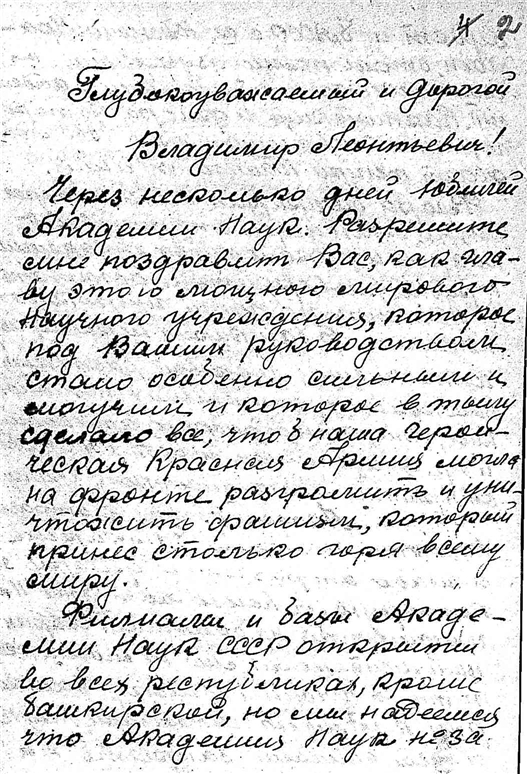 4 2
Глубокоуважаемый и дорогой
Владимир Леонтьевич!
Через несколько дней юбилей
Академии Наук. Разрешите
мне поздравить Вас, как гла-
ву этого мощного мирового
Научного учреждения, которое
под Вашим руководством
стало особенно сильным и
могучим и которое в тылу
сделало все, что б наша герои-
ческая Красная Армия могла
на фронте разгромить и уни-
чтожить фашизм, который
принес столько горя всему
миру.
Филиалы и базы Акаде-
мии Наук СССР открыты
во всех республиках, кроме
Башкирской, но мы надеемся
что Академия Наук не за